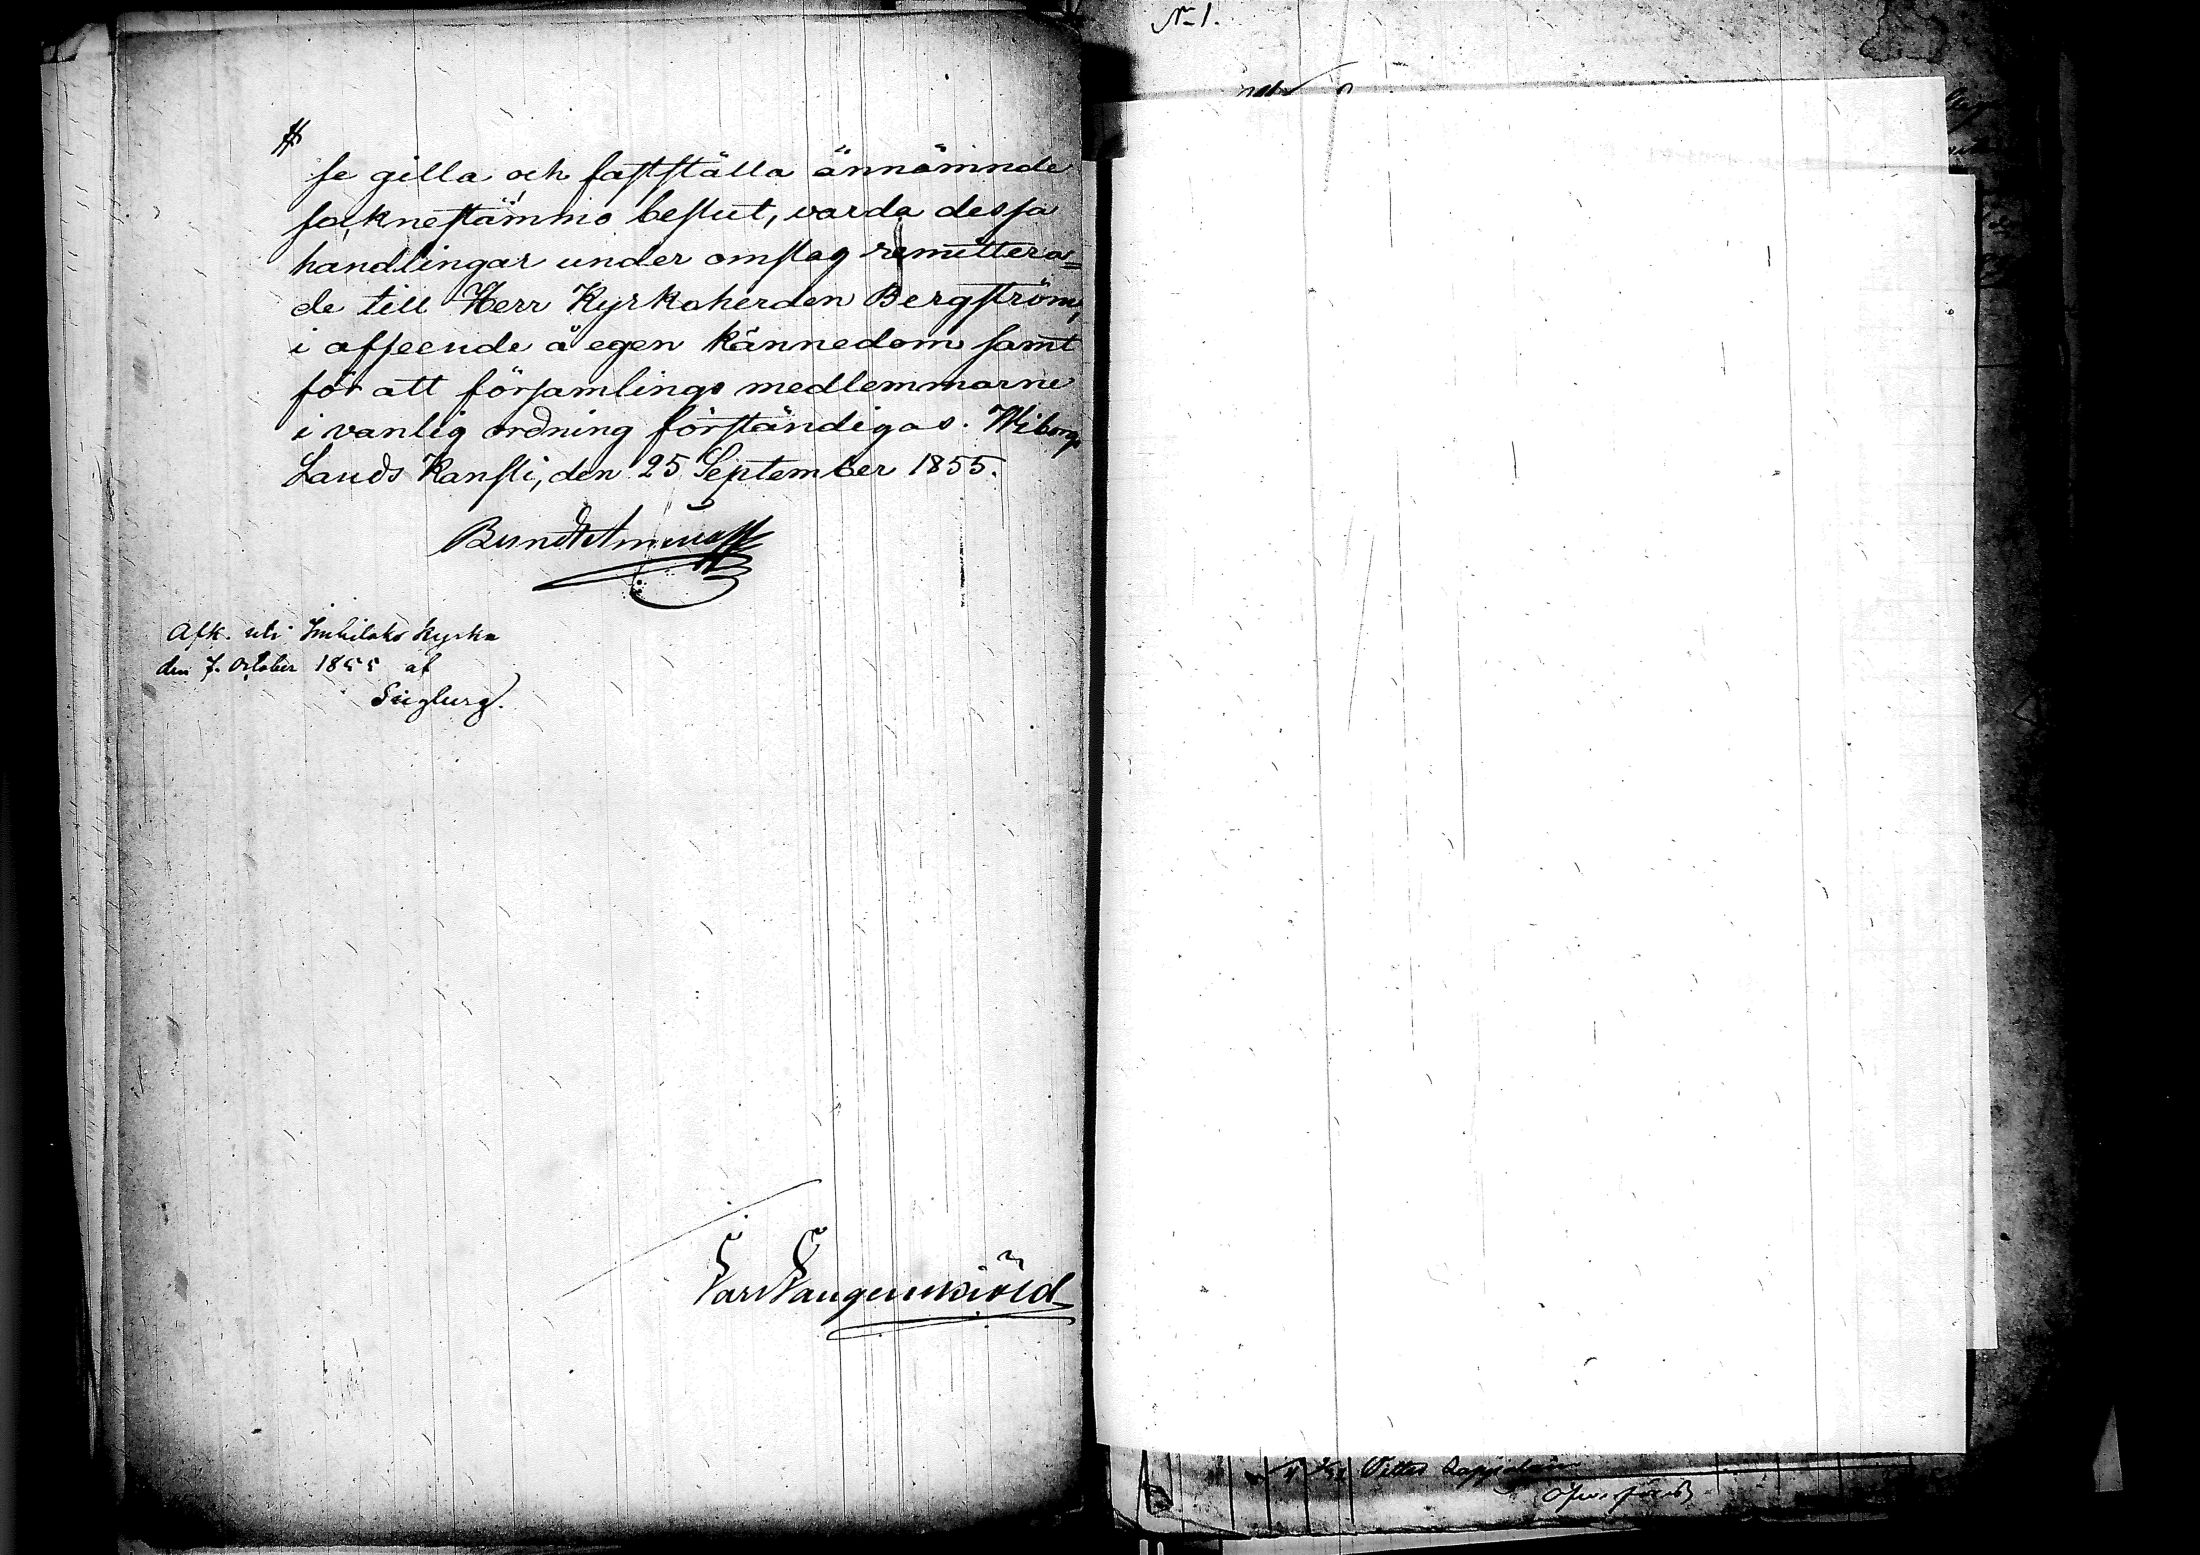 se gilla och fastställa ännämnde
söknestämmo beslut, varda dessa
handlingar under omslag remittera=
de till Herr Kyrkoherden Bergström,
i afseende å egen kännedom samt
för att församlings medlemmarne
i vanlig ordning förständigas. Wiborgs
Lands Kansli, den 25 September 1855.
Afk. uti Imbilaks Kyrka
den 7. October 1855 af
Lars Langenskiöld
No 1.